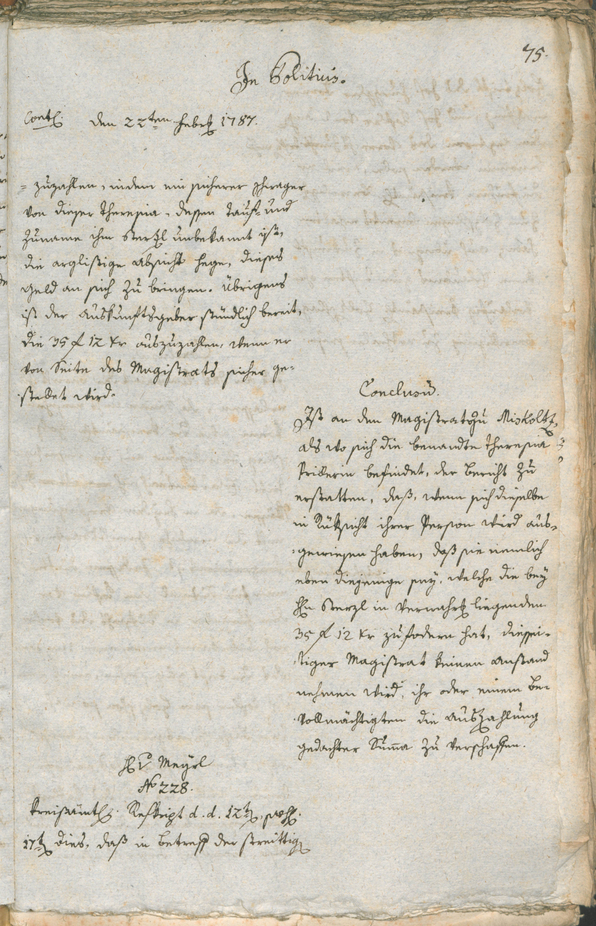 75.
In Politicis.
Cont. den 22ten Febr 1787.
zuzahlen, indem ein sicherer Schwager
von dieser Theresia, dessen Tauf- und
Zuname ihm Sterzl unbekannt ist,
die arglistige Absicht hege, dieses
Geld an sich zu bringen. Übrigens
ist der Auskunftsgeber stündlich bereit,
die 35 f 12 kr auszuzahlen, wenn er
von Seite des Magistrats sicher ge-
stellet wird.
Conclusum.
Ist an den Magistrat zu Miskoltz,
als wo sich die benandte Theresia
befindet, der Bericht zu
erstatten, daß, wenn sich dieselbe
in Rüksicht ihrer Person wird aus-
gewiesen haben, daß sie nemlich
eben diejenige sey, welche die bey
Hn Sterzl in Verwahr liegenden
35 f 12 kr zu fodern hat, diessei-
tiger Magistrat keinen Anstand
nehmen wird, ihr oder einem Be-
vollmächtigten die Auszahlung
gedachter Summa zu verschaffen.
Hr v Meyrl
No 228.
Kreisämtl. Reskript d. d. 12t, 
17t dies, daß in Betreff der streittig